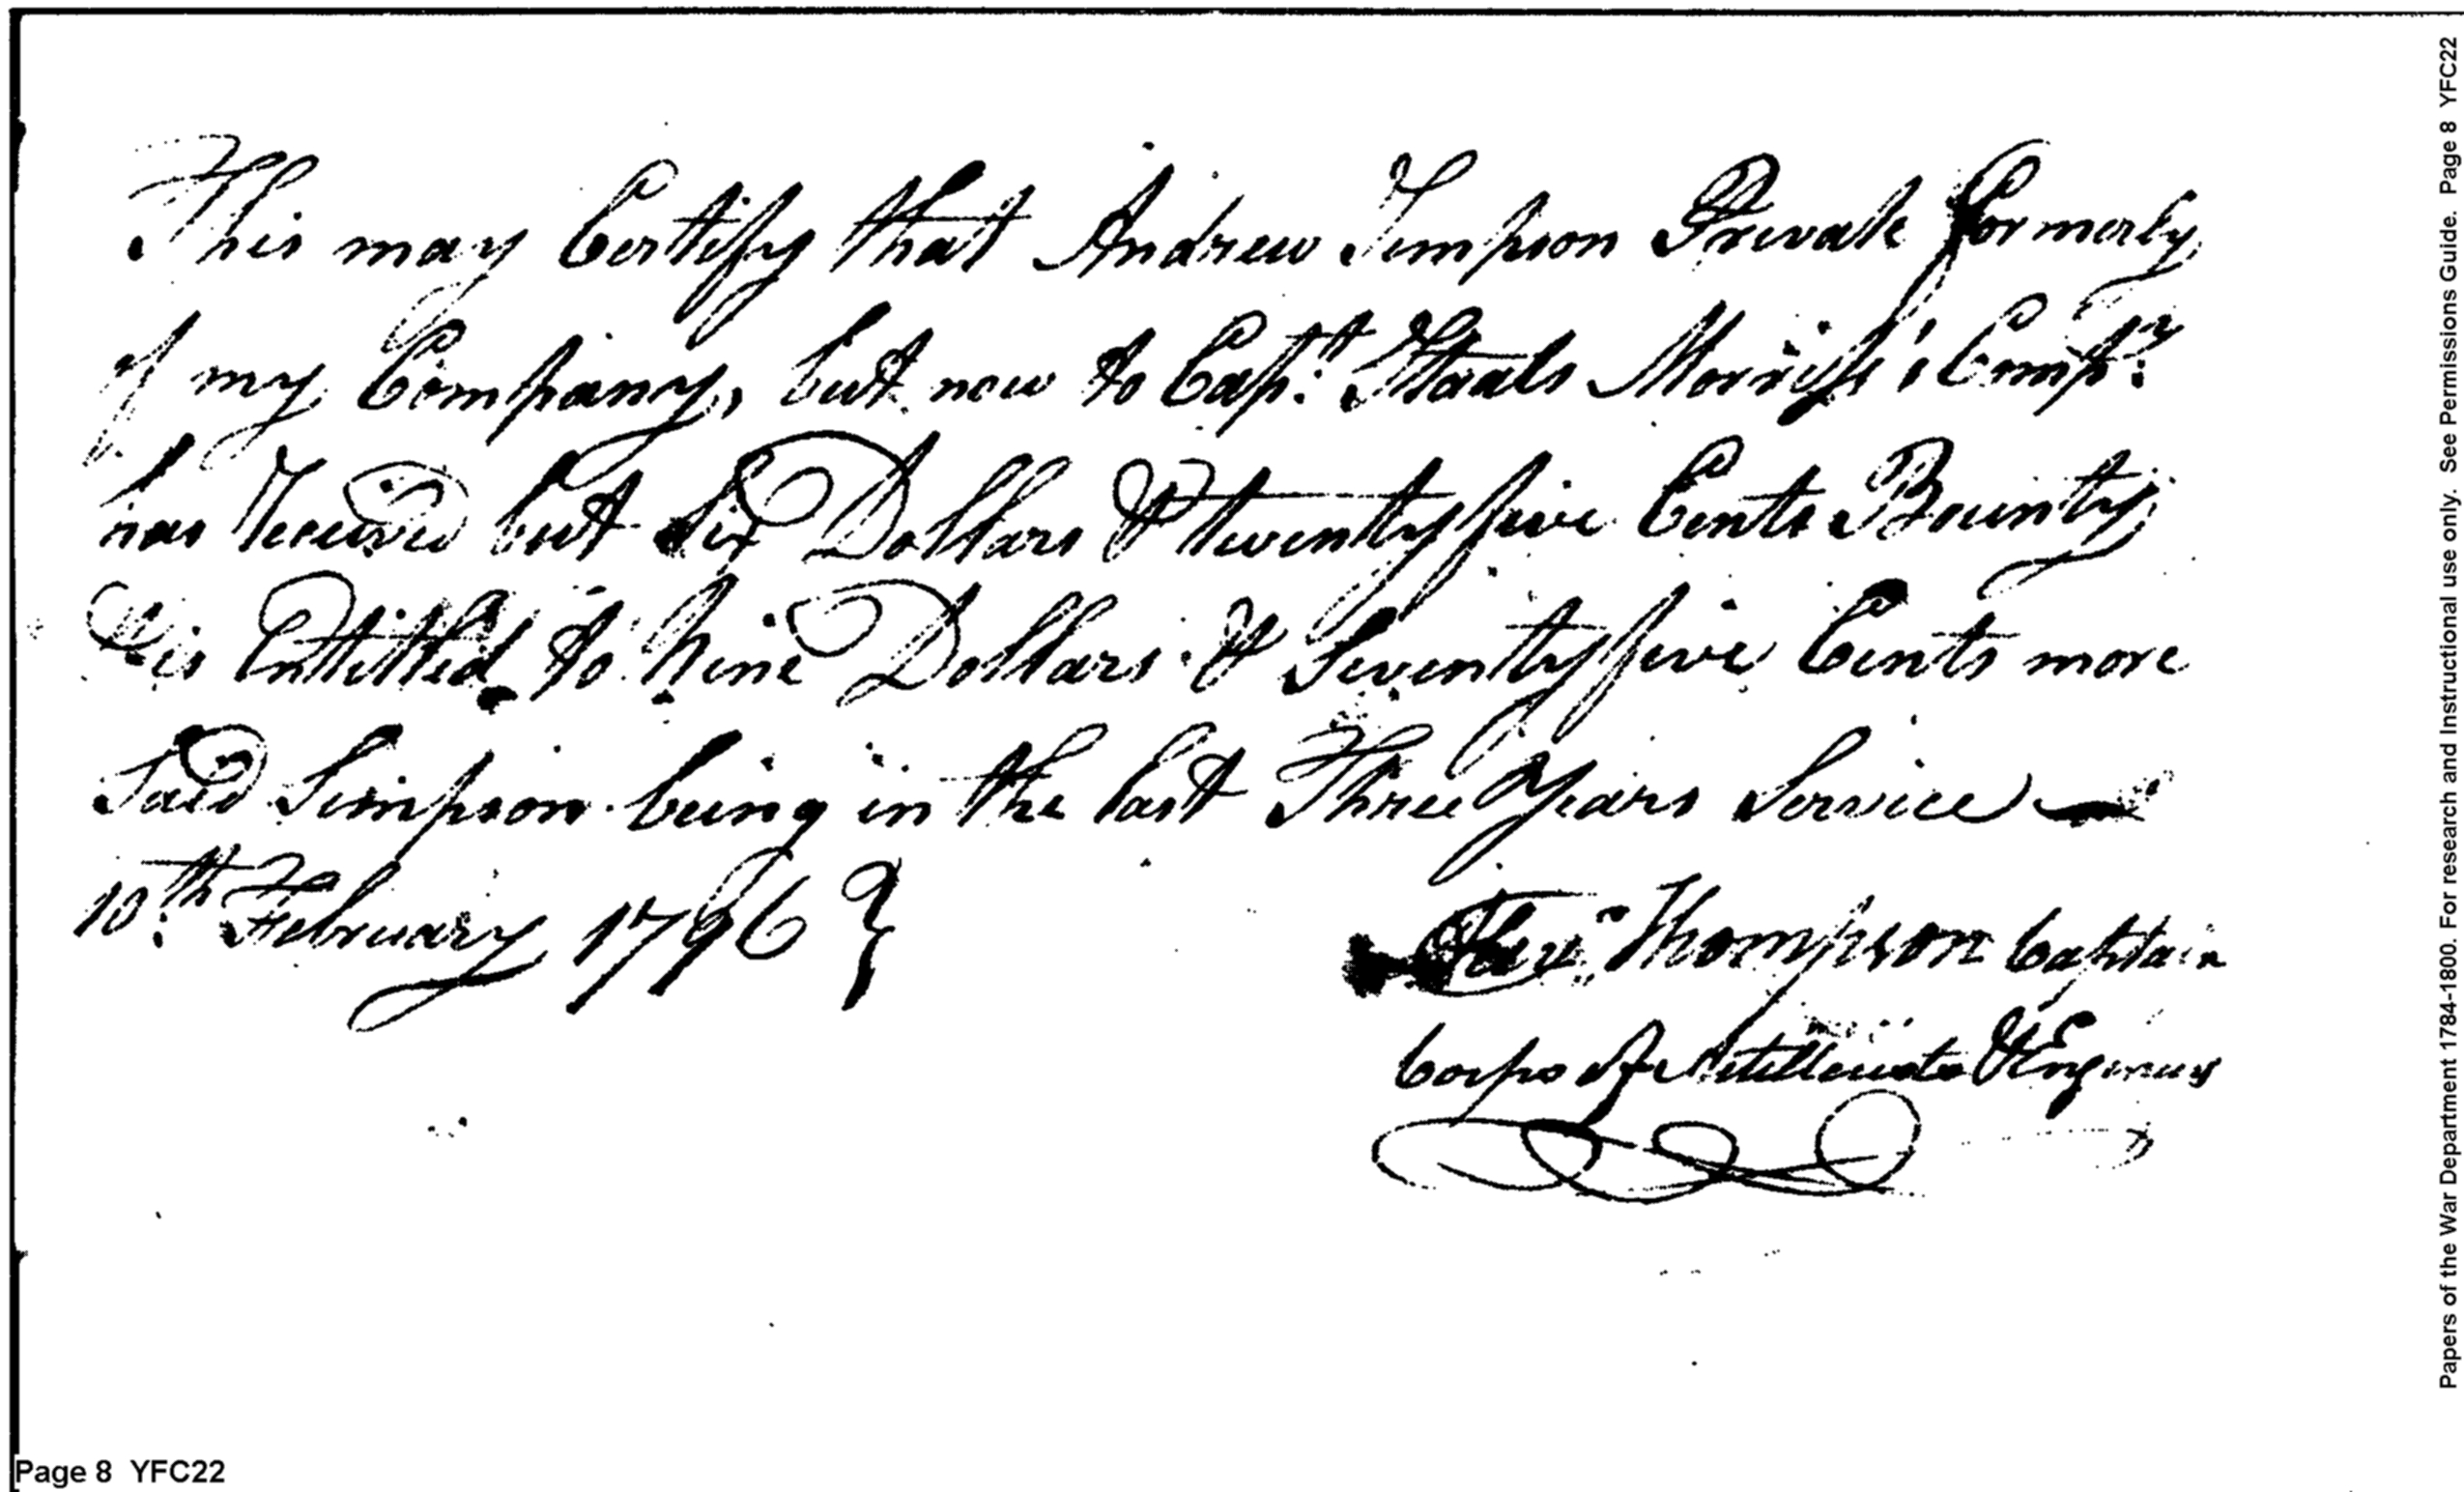 This may Certify that Andrew Simpson Private formerly
of my Company, but now to Capt. Staats Morris's Compy
has Received but Six Dollars & twenty five Cents Bounty
& is Entittled to Nine Dollars & Seventy five Cents more
Said Simpson being in the last Three Years Service
10th February 1796
Thompson Captain
Corps of Artillerists & Engineers
Page 8 YFC22
Papers of the War Department 1784-1800. For research and Instructional use only. See Permissions Guide. Page 8 YFC22